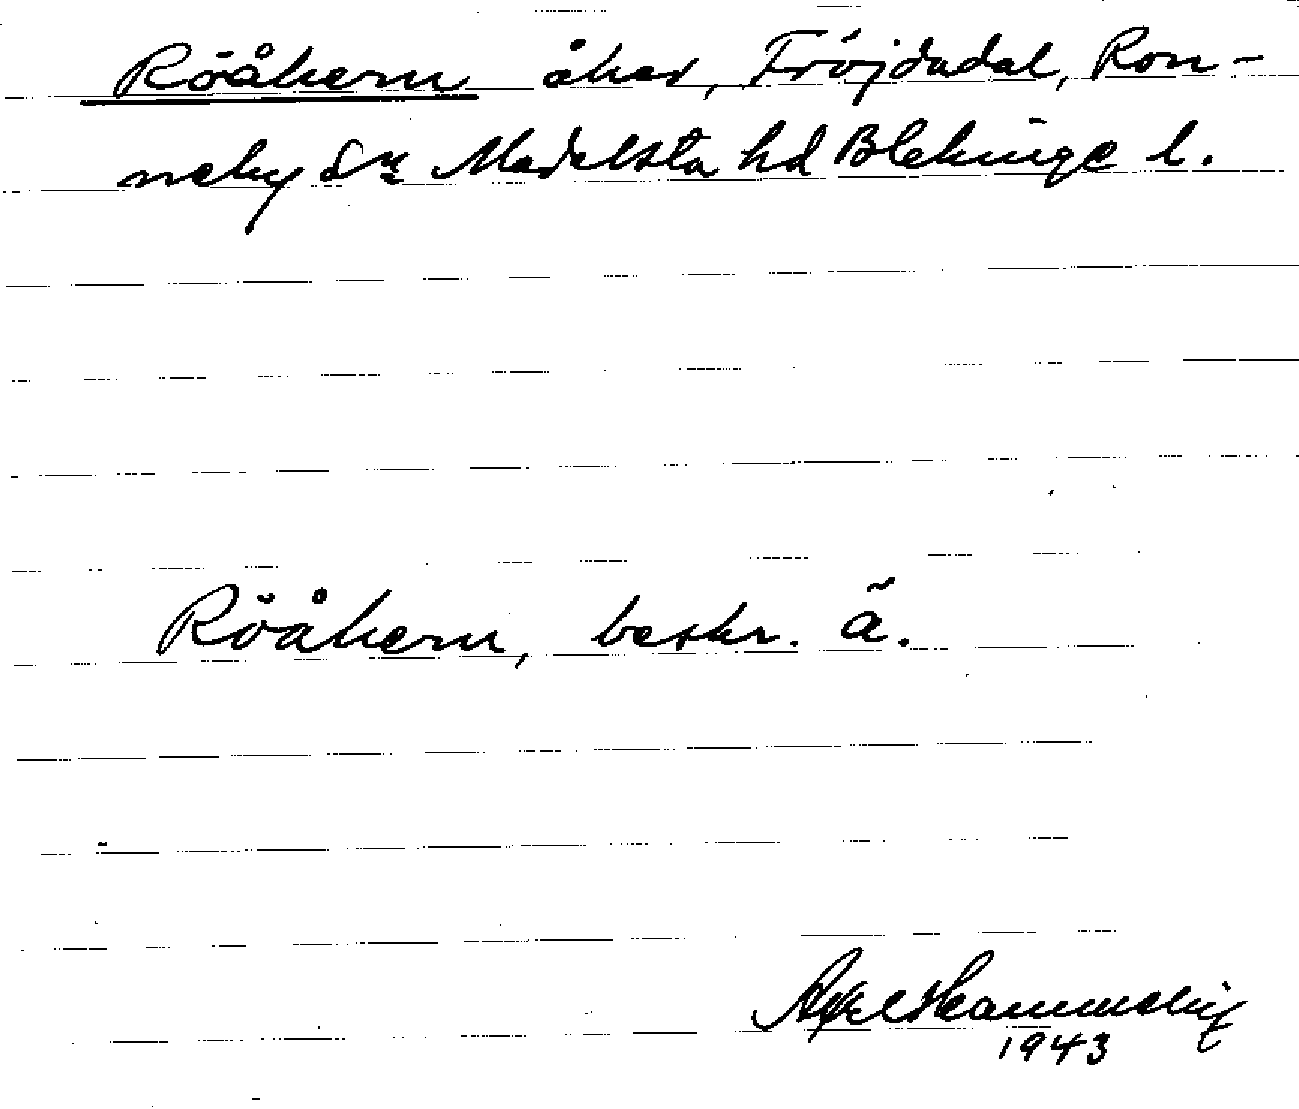 Röåkern åker, Fröjdadal, Ron-
neby sn Medelsta hd Blekinge l.
Röåkern, beskr. ä.
Axel
1943